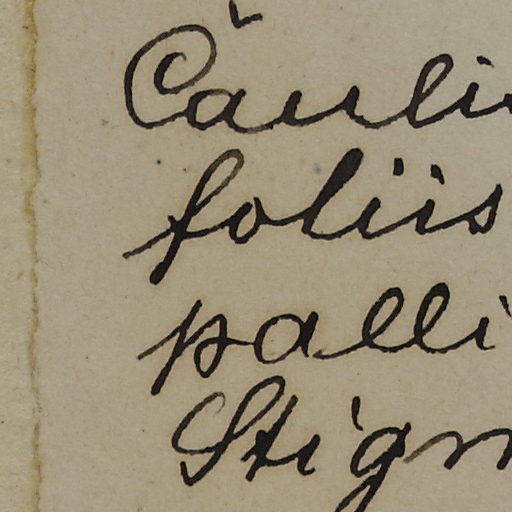 Cauli
foliis
palli
Stigm